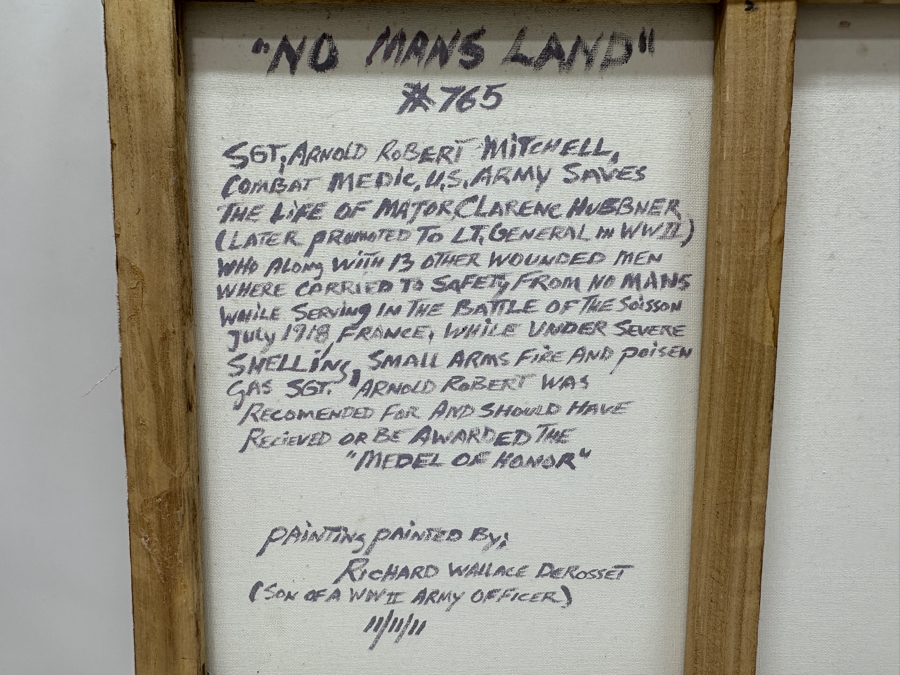 "NO MANS LAND"
#765
SGT, ARNOLD ROBERT MITCHELL,
COMBAT MEDIC, U.S. ARMY SAVES
THE LIFE OF MAJOR, CLARENC HUBBNER
(LATER PROMOTED TO LT. GENERAL IN WWII)
WHO ALONG WITH 13 OTHER WOUNDED MEN
WHERE CARRIED TO SAFETY FROM NO MANS
WHILE SERVING IN THE BATTLE OF THE SOISSON
JULY 1918, FRANCE, WHILE UNDER SEVERE
SHELLING, SMALL ARMS FIRE AND POISEN
GAS SGT. "ARNOLD ROBERT WAS
RECOMENDED FOR AND SHOULD HAVE
RECIEVED OR BE AWARDED THE
"MEDEL OF HONOR"
PAINTING PAINTED BY;
RICHARD WALLACE DEROSSET
(SON OF A WWII ARMY OFFICER)
11/11/11